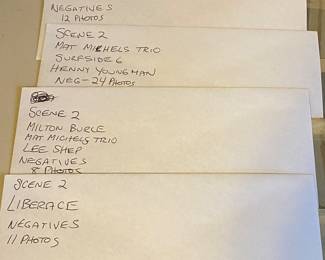 NEGATIVES
12 PHOTOS
SCENE 2
MAT MICHELS TRIO
SURFSIDE 6
HENNY YOUNGMAN
NEG - 24 PHOTOS
SCENE 2
MILTON BURLE
MAT MICHELS TRIO
LEE SHEP
NEGATIVES
8 PHOTOS
SCENE 2
LIBERACE
NEGATIVES
11 PHOTOS